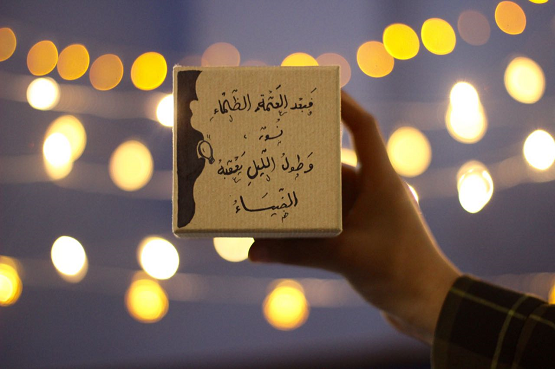 فبعد العتمة الظلماء
نور،
وطول الليل يعقبه
الضياء